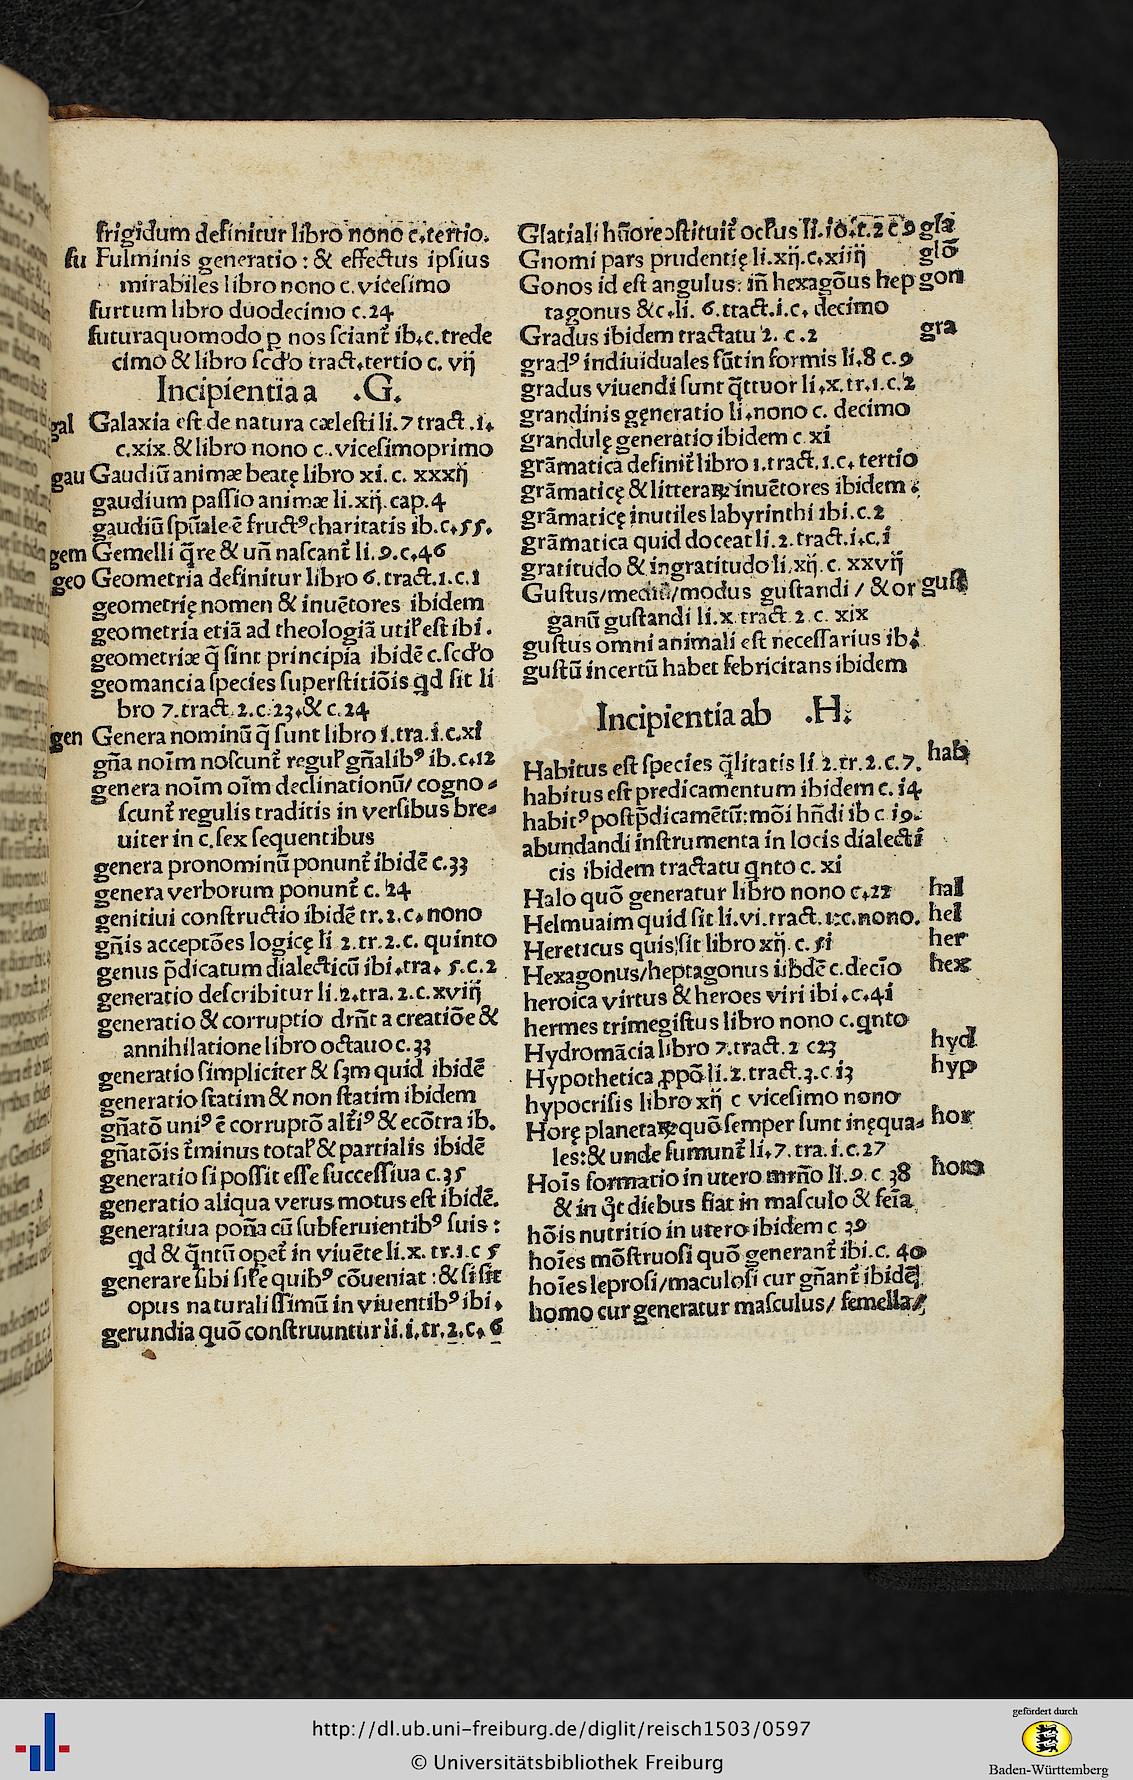 frigidum definitur libro nono c.tertio.
fu Fulminis generatio : & effectus ipsius
mirabiles libro nono c. vicesimo
furtum libro duodecimo c.24
futuraquomodo p nos sciant̃ ib.c.trede
cimo & libro scd'o tract.tertio c. vij
Incipientia a .G.
gal Galaxia est de natura cælesti li. 7 tract .i.
c.xix. & libro nono c..vicesimoprimo
gau Gaudiū animæ beatę libro xi. c. xxxij
gaudium passio animæ li.xij. cap.4
gaudiū spũale ē fructꝰ charitatis ib.c.55.
gem Gemelli q̃re & uñ nascant̃ li.9.c.46
geo Geometria definitur libro 6. tract.1.c.1
geometrię nomen & inuētores ibidem
geometria etiā ad theologiā util' est ibi .
geometriæ q̃ sint principia ibidē c.scd'o
geomancia species superstitiōis qd sit li
bro 7.tract.2.c.23.& c.24
gen Genera nominū q̃ sunt libro i.tra.i.c.xi
gña noīm noscunt̃ regul' gñalibꝰ ib.c.12
genera noīm oīm declinationū/ cogno⸗
scunt̃ regulis traditis in versibus bre⸗
uiter in c.sex sequentibus
genera pronominū ponunt̃ ibidē c.33
genera verborum ponunt̃ c. 24
genitiui constructio ibidē tr.2.c. nono
gñis acceptōes logicę li 2.tr.2.c. quinto
genus p̃dicatum dialecticū ibi.tra. 5.c.2
generatio describitur li.2.tra.2.c.xviij
generatio & corruptio drñt a creatiōe &
annihilatione libro octauo c.33
generatio simpliciter & sꝫm quid ibidē
generatio statim & non statim ibidem
gñatō uniꝰ ē corruptō alt̃iꝰ & ecōtra ib.
gñatōis t̃minus total' & partialis ibidē
generatio si possit esse successiua c.35
generatio aliqua verus motus est ibidē.
generatiua poña cū subseruientibꝰ suis :
qd & q̃ntū opet̃ in viuēte li.x. tr.1.c 5
generare sibi sil'e quibꝰ cōueniat : & si sit
opus naturalissimū in viuentibꝰ ibi.
gerundia quō construuntur li.i.tr.2.c. 6
Glatiali hūore ɔstituit̃ ocl'us li.10.t.2 c 9 gla
Gnomi pars prudentię li.xij.c.xiiij glō
Gonos id est angulus: iñ hexagōus hep gon
tagonus &c.li. 6.tract.i.c. decimo
Gradus ibidem tractatu 2. c .2 gra
gradꝰ indiuiduales sūt in formis li.8 c.9
gradus viuendi sunt q̃ttuor li.x.tr.1.c.2
grandinis gęneratio li.nono c. decimo
grandulę generatio ibidem c xi
grāmatica definit̃ libro 1.tract.1.c. tertio
grāmaticę & litteraꝝ inuētores ibidem .
grāmaticę inutiles labyrinthi ibi.c.2
grāmatica quid doceat li.2.tract.i.c.i
gratitudo & ingratitudo li.xij.c. xxvij
Gustus/mediū/modus gustandi / & or gust
ganū gustandi li.x tract 2.c. xix
gustus omni animali est necessarius ib.
gustū incertū habet febricitans ibidem
Incipientia ab .H.
Habitus est species q̃litatis li.2.tr.2.c.7. hab
habitus est predicamentum ibidem c. i4
habitꝰ postp̃dicamētū: mōi hñdi ib c 19.
abundandi instrumenta in locis dialecti
cis ibidem tractatu qnto c. xi
Halo quō generatur libro nono c.22 hal
Helmuaim quid sit li.vi.tract.1:c.nono. hel
Hereticus quis sit libro xij. c. 51 her
Hexagonus/heptagonus iibdē c.decīo hex
heroica virtus & heroes viri ibi.c.4i
hermes trimegistus libro nono c.qnto
Hydromācia libro 7.tract.2 c23 hyd
Hypothetica ꝓpō li.2.tract.3.c i3 hyp
hypocrisis libro xij c vicesimo nono
Horę planetaꝝ quō semper sunt inęqua⸗ hor
les:& unde sumunt̃ li.7.tra.i.c.27
Hoīs formatio in utero mrño li.9.c 38 hom
& in q̃t diebus fiat in masculo & feīa
hōis nutritio in utero ibidem c 39
hoīes mōstruosi quō generant̃ ibi.c. 40
hoīes leprosi/maculosi cur gñant̃ ibidē
homo cur generatur masculus/ femella/
http://dl.ub.uni-freiburg.de/diglit/reisch1503/0597
© Universitätsbibliothek Freiburg
gefördert durch
Baden-Württemberg